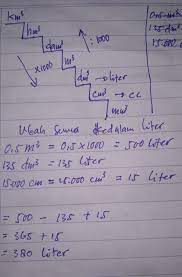 km³
hm³
dam³
: 1000
m³
x1000
dm³ → liter
cm³ → cc
mm³
0.5 m³
135 dm³
15.000
Ubah Semua kedalam liter
0.5 m³ = 0.5 x 1000 = 500 liter
135 dm³ = 135 liter
15.000 cm = 15.000 cm³ = 15 liter
= 500 - 135 + 15
= 365 + 15
= 380 liter